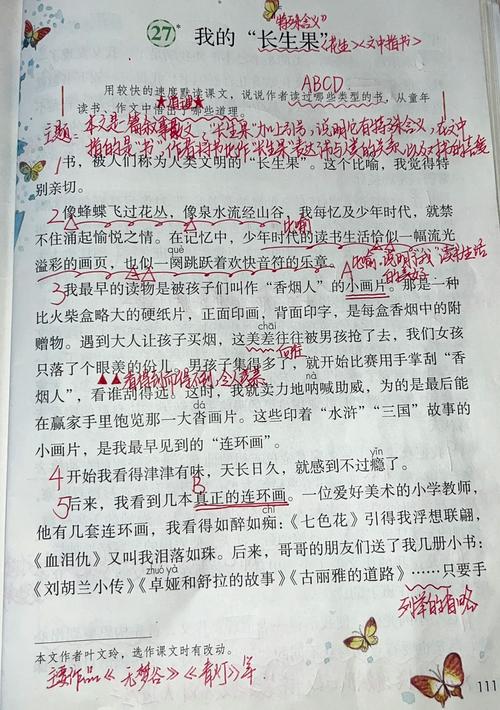 "特殊含义"
27* 我的“长生果” <书>《文中指书》
ABCD
用较快的速度默读课文，说说作者读过哪些类型的书，从童年
★道理★
读书、作文中悟出了哪些道理。
主题：本文是篇叙事散文，"长生果"加上引号，说明它有特殊含义，在文中
指的是"书"，作者将书比作"长生果"表达
1书，被人们称为人类文明的“长生果”。这个比喻，我觉得特
别亲切。
2像蜂蝶飞过花丛，像泉水流经山谷，我每忆及少年时代，就禁
比喻
què
不住涌起愉悦之情。在记忆中，少年时代的读书生活恰似一幅流光
溢彩的画页，也似一阕跳跃着欢快音符的乐章。
比喻，说明了"我"读书生活
的美好
A
3我最早的读物是被孩子们叫作“香烟人”的小画片。那是一种
比火柴盒略大的硬纸片，正面印画，背面印字，是每盒香烟中的附
chāi
赠物。遇到大人让孩子买烟，这美差往往被男孩抢了去，我们女孩
只落了个眼羡的份儿。男孩子集得多了，就开始比赛用手掌刮“香
▲▲看得到而得不到，含义
烟人”，看谁刮得远。这时，我就卖力地呐喊助威，为的是最后能
dá
在赢家手里饱览那一大沓画片。这些印着“水浒”“三国”故事的
小画片，是我最早见到的“连环画”。
yǐn
4开始我看得津津有味，天长日久，就感到不过瘾了。
B
5后来，我看到几本真正的连环画。一位爱好美术的小学教师，
chī
他有几套连环画，我看得如醉如痴：《七色花》引得我浮想联翩，
《血泪仇》又叫我泪落如珠。后来，哥哥的朋友们送了我几册小书：
zhuó yà
《刘胡兰小传》《卓娅和舒拉的故事》《古丽雅的道路》……只要手
列举的省略
本文作者叶文玲，选作课文时有改动。
主要作品《无梦谷》《青灯》等
111